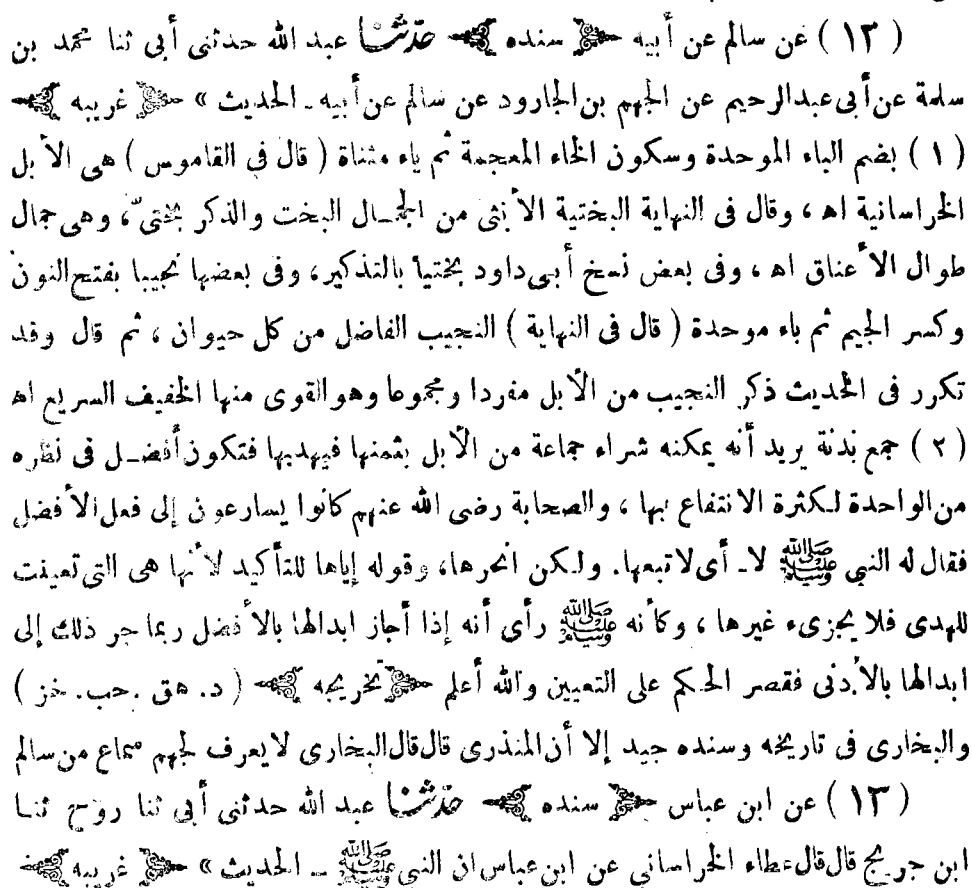 ( ١٢ ) عن سالم عن أبيه ﴿ سنده ﴾ حدّثنا عبد الله حدثنى أبى ثنا محمد بن
سلمة عن أبى عبد الرحيم عن الجهم بن الجارود عن سالم عن أبيه ـ الحديث » ﴿ غريبه ﴾
( ١ ) بضم الباء الموحدة وسكون الخاء المعجمة ثم ياء مثناة ( قال فى القاموس ) هى الأبل
الخراسانية اهـ ، وقال فى النهاية البختية الأنثى من الجمال البخت والذكر بختىّ، وهى جمال
طوال الأعناق اهـ ، وفى بعض نسخ أبى داود بختيا بالتذكير، وفى بعضها نجيبا بفتح النون
وكسر الجيم ثم باء موحدة ( قال فى النهاية ) النجيب الفاضل من كل حيوان ، ثم قال وقد
تكرر فى الحديث ذكر النجيب من الأبل مفردا ومجموعا وهو القوى منها الخفيف السريع اهـ
( ٢ ) جمع بدنة يريد أنه يمكنه شراء جماعة من الأبل بثمنها فيهديها فتكون أفضل فى نظره
من الواحدة لكثرة الانتفاع بها ، والصحابة رضى الله عنهم كانوا يسارعون إلى فعل الأفضل
فقال له النبى ﷺ لا ـ أى لا تبعها. ولكن انحرها، وقوله إياها للتأكيد لأنها هى التى تعينت
للهدى فلا يجزىء غيرها ، وكأنه ﷺ رأى أنه إذا أجاز ابدالها بالأفضل ربما جر ذلك إلى
ابدالها بالأدنى فقصر الحكم على التعيين والله أعلم ﴿ تخريجه ﴾ ( د. هق .حب. خز )
والبخارى فى تاريخه وسنده جيد إلا أن المنذرى قال قال البخارى لا يعرف لجهم سماع من سالم
( ١٣ ) عن ابن عباس ﴿ سنده ﴾ حدّثنا عبد الله حدثنى أبى ثنا روح ثنا
ابن جريج قال قال عطاء الخراسانى عن ابن عباس ان النبى ﷺ ـ الحديث » ﴿ غريبه ﴾